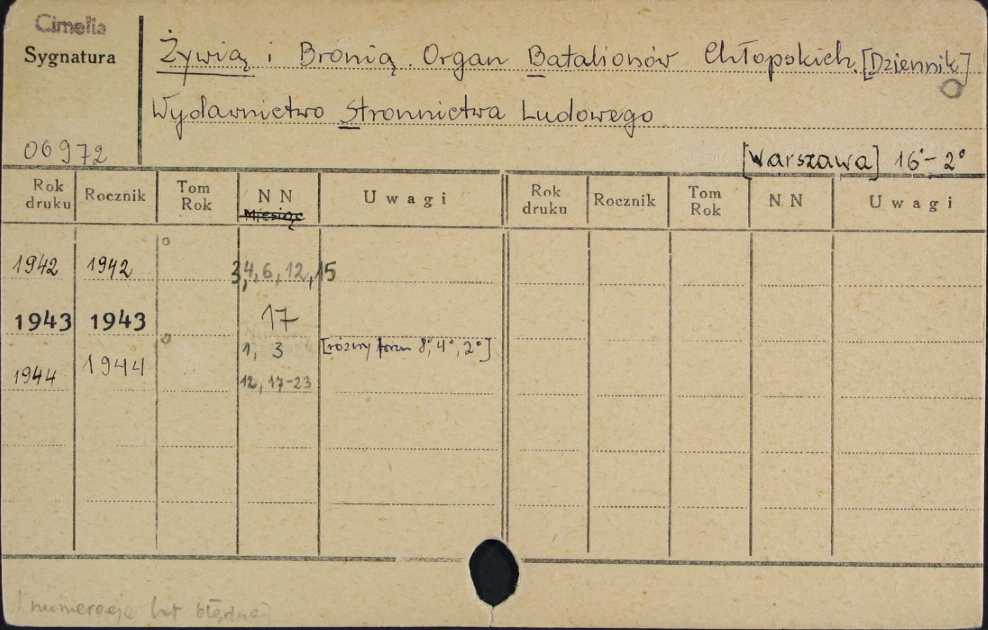 Cimelia
Sygnatura
Żywią i Bronią. Organ Batalionów Chłopskich. [Dziennik]
Wydawnictwo Stronnictwa Ludowego
06972
[Warszawa] 16°-2°
Rok druku Rocznik Tom Rok N N Miesiąc Uwagi Rok druku Rocznik Tom Rok N N Uwagi
1942 1942 3,4,6,12,15
1943 1943 17
1944 1944 1, 3 [różny form 8°, 4°, 2°]
12, 17-23
numeracja